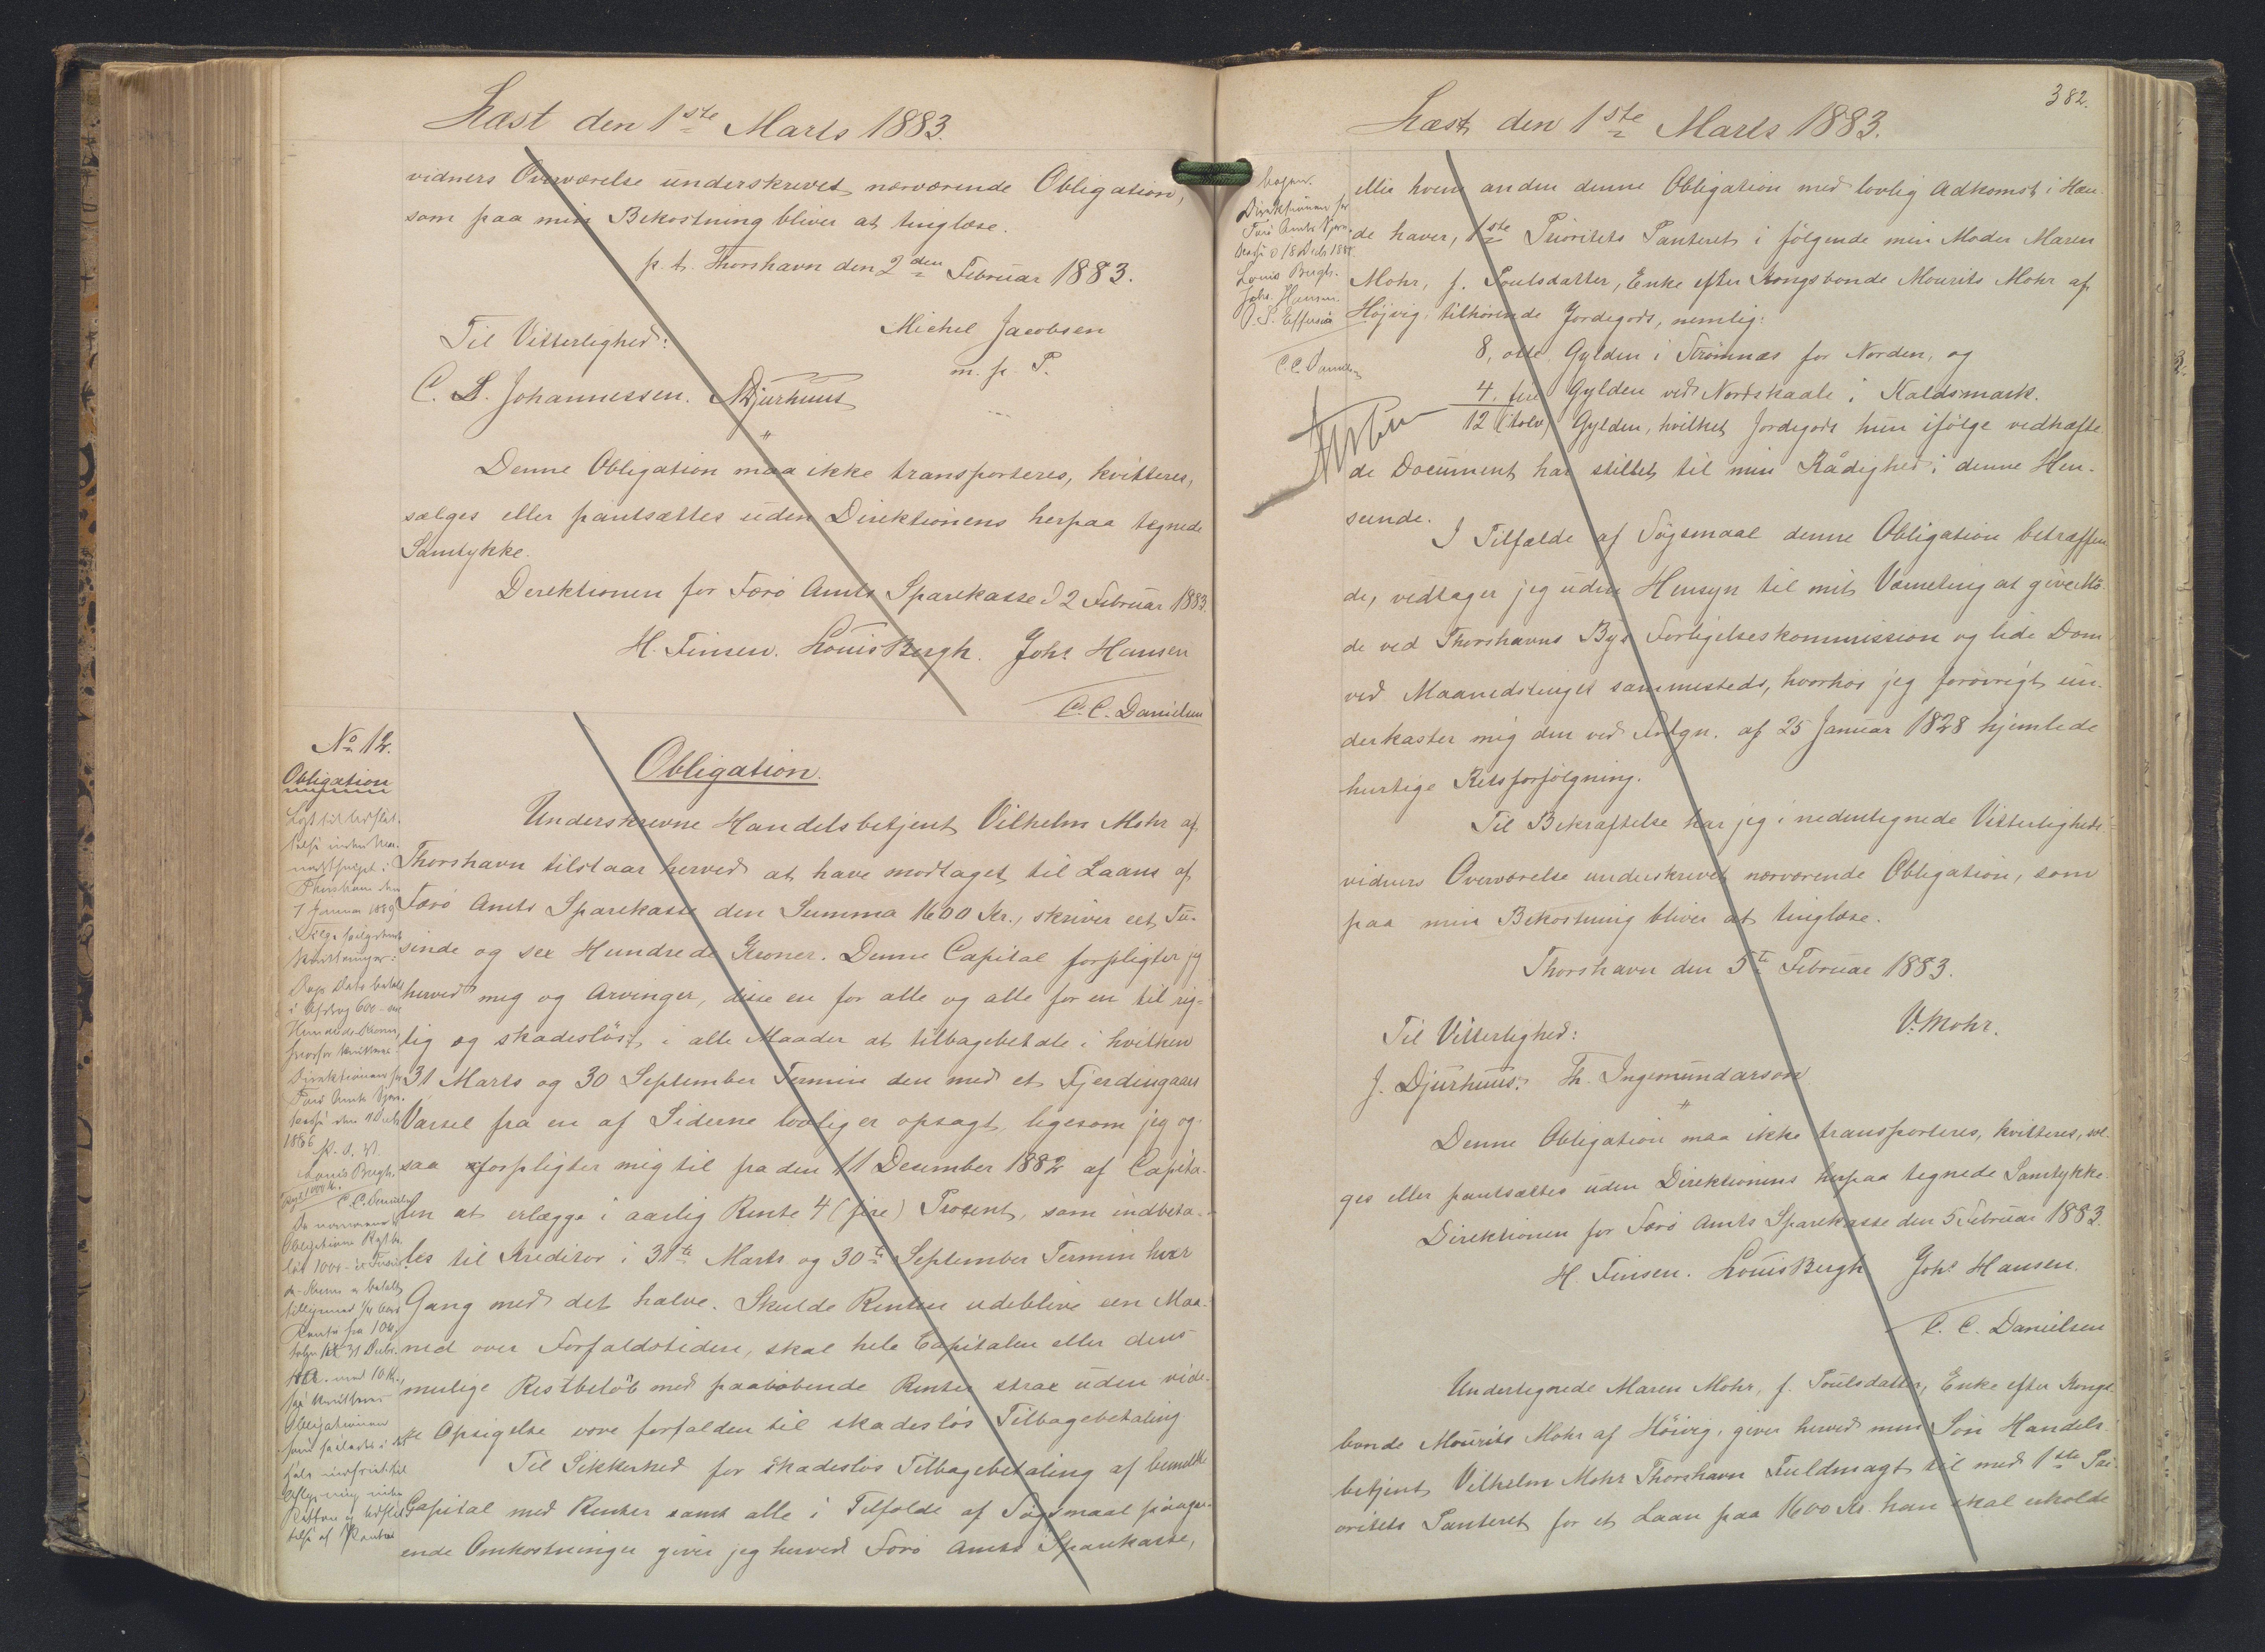 Læst den 1ste Marts 1883.
vidners Overværelse underskrevet nærværende Obligation,
som paa min Bekostning bliver at tinglæse.
p. t. Thorshavn den 2den Februar 1883.
Michel Jacobsen
m. p. P.
Til Vitterlighed:
C. L. Johannessen. N Djurhuus
"
Denne Obligation maa ikke transporteres, kvitteres,
sælges eller pantsættes uden Direktionens herpaa tegnede
Samtykke.
Derektionen for Færö Amts Sparekasse d 2 Februar 1883.
H. Finsen. Louis Bergh. Johs Hansen
C. C. Danielsen
No 12.
Obligation
Lyst til Udslet-
telse inden Maa-
nedsthinget i
Thorshavn den
7 Januar 1889
Direktionen for
Færö Amts Spare-
kasse den 11 Decbr
1886
Louis Bergh.
C. C. Danielsen
Obligation.
Underskrevne Handelsbetjent Vilhelm Mohr af
Thorshavn tilstaar herved at have modtaget til Laans af
Færö Amts Sparekasse den Summa 1600 Kr., skriver eet Tu-
sinde og sex Hundrede Kroner. Denne Capital forpligter jeg
herved mig og Arvinger, disse en for alle og alle for en til rig-
tig og skadeslöst, i alle Maader at tilbagebetale i hvilken
31 Marts og 30 September Termin den med et Fjerdingaars
Varsel fra en af Siderne lovlig er opsagt, ligesom jeg og-
saa forpligter mig til fra den 11 December 1882 af Capita-
len at erlægge i aarlig Rente 4 (fire) Procent, som indbeta-
les til Kreditor i 31te Marts og 30te September Termin hver
Gang med det halve. Skulde Renten udeblive een Maa-
ned over Forfaldstiden, skal hele Capitalen eller dens
mulige Restbelöb med paaløbende Renter strax uden vide-
re Opsigelse være forfalden til skadeslös Tilbagebetaling
Til Sikkerhed for skadeslös Tilbagebetaling af bemeldte
Capital med Renter samt alle i Tilfælde af Søgsmaal paagaa-
ende Omkostninger giver jeg herved Færö Amts Sparekasse,
382.
Læst den 1ste Marts 1883.
Direktionen for
Færö Amts Spare-
kasse d 18 Decbr 188
Louis Bergh.
Johs. Hansen.
C. C. Danielsen
eller hvem anden denne Obligation med lovlig Adkomst i Hæn-
de haver, 1ste Prioritets Panteret i fölgende min Moder Maren
Mohr, f. Poulsdatter, Enke efter Kongsbonde Mourits Mohr af
Höjvig, tilhörende Jordegods, nemlig:
8, otte Gylden i Strömnæs for Norden, og
4. fire Gylden ved Nordskaale i Kaldsmark.
12 (tolv) Gylden, hvilket Jordegods hun ifölge vedhæfte-
de Document har stillet til min Rådighed i denne Hen-
seende.
I Tilfælde af Søgsmaal denne Obligation betræffen-
de, vedtager jeg uden Hensyn til mit Værneting at give Mö-
de ved Thorshavns Bys Forligelseskommission og lide Dom
ved Maanedstinget sammesteds, hvorhos jeg forövrigt un-
derkaster mig den ved Frdgn. af 25 Januar 1828 hjemlede
hurtige Retsforfölgning.
Til Bekræftelse har jeg i nedentegnede Vitterligheds-
vidners Overværelse underskrevet nærværende Obligation, som
paa min Bekostning bliver at tinglæse.
Thorshavn den 5te Februar 1883.
V. Mohr.
Til Vitterlighed:
J. Djurhuus. Th. Ingemundarson
"
Denne Obligation maa ikke transporteres, kvitteres, sæl-
ges eller pantsættes uden Direktionens herpaa tegnede Samtykke.
Direktionen for Færö Amts Sparekasse den 5 Februar 1883.
H. Finsen. Louis Bergh Johs Hansen.
C. C. Danielsen
Undertegnede Maren Mohr, f. Poulsdatter, Enke efter Kongs-
bonde Mourits Mohr af Höivig, giver herved min Sön Handels-
betjent Vilhelm Mohr Thorshavn Fuldmagt til med 1ste Pri-
oritets Panteret for et Laan paa 1600 Kr. han skal erholde